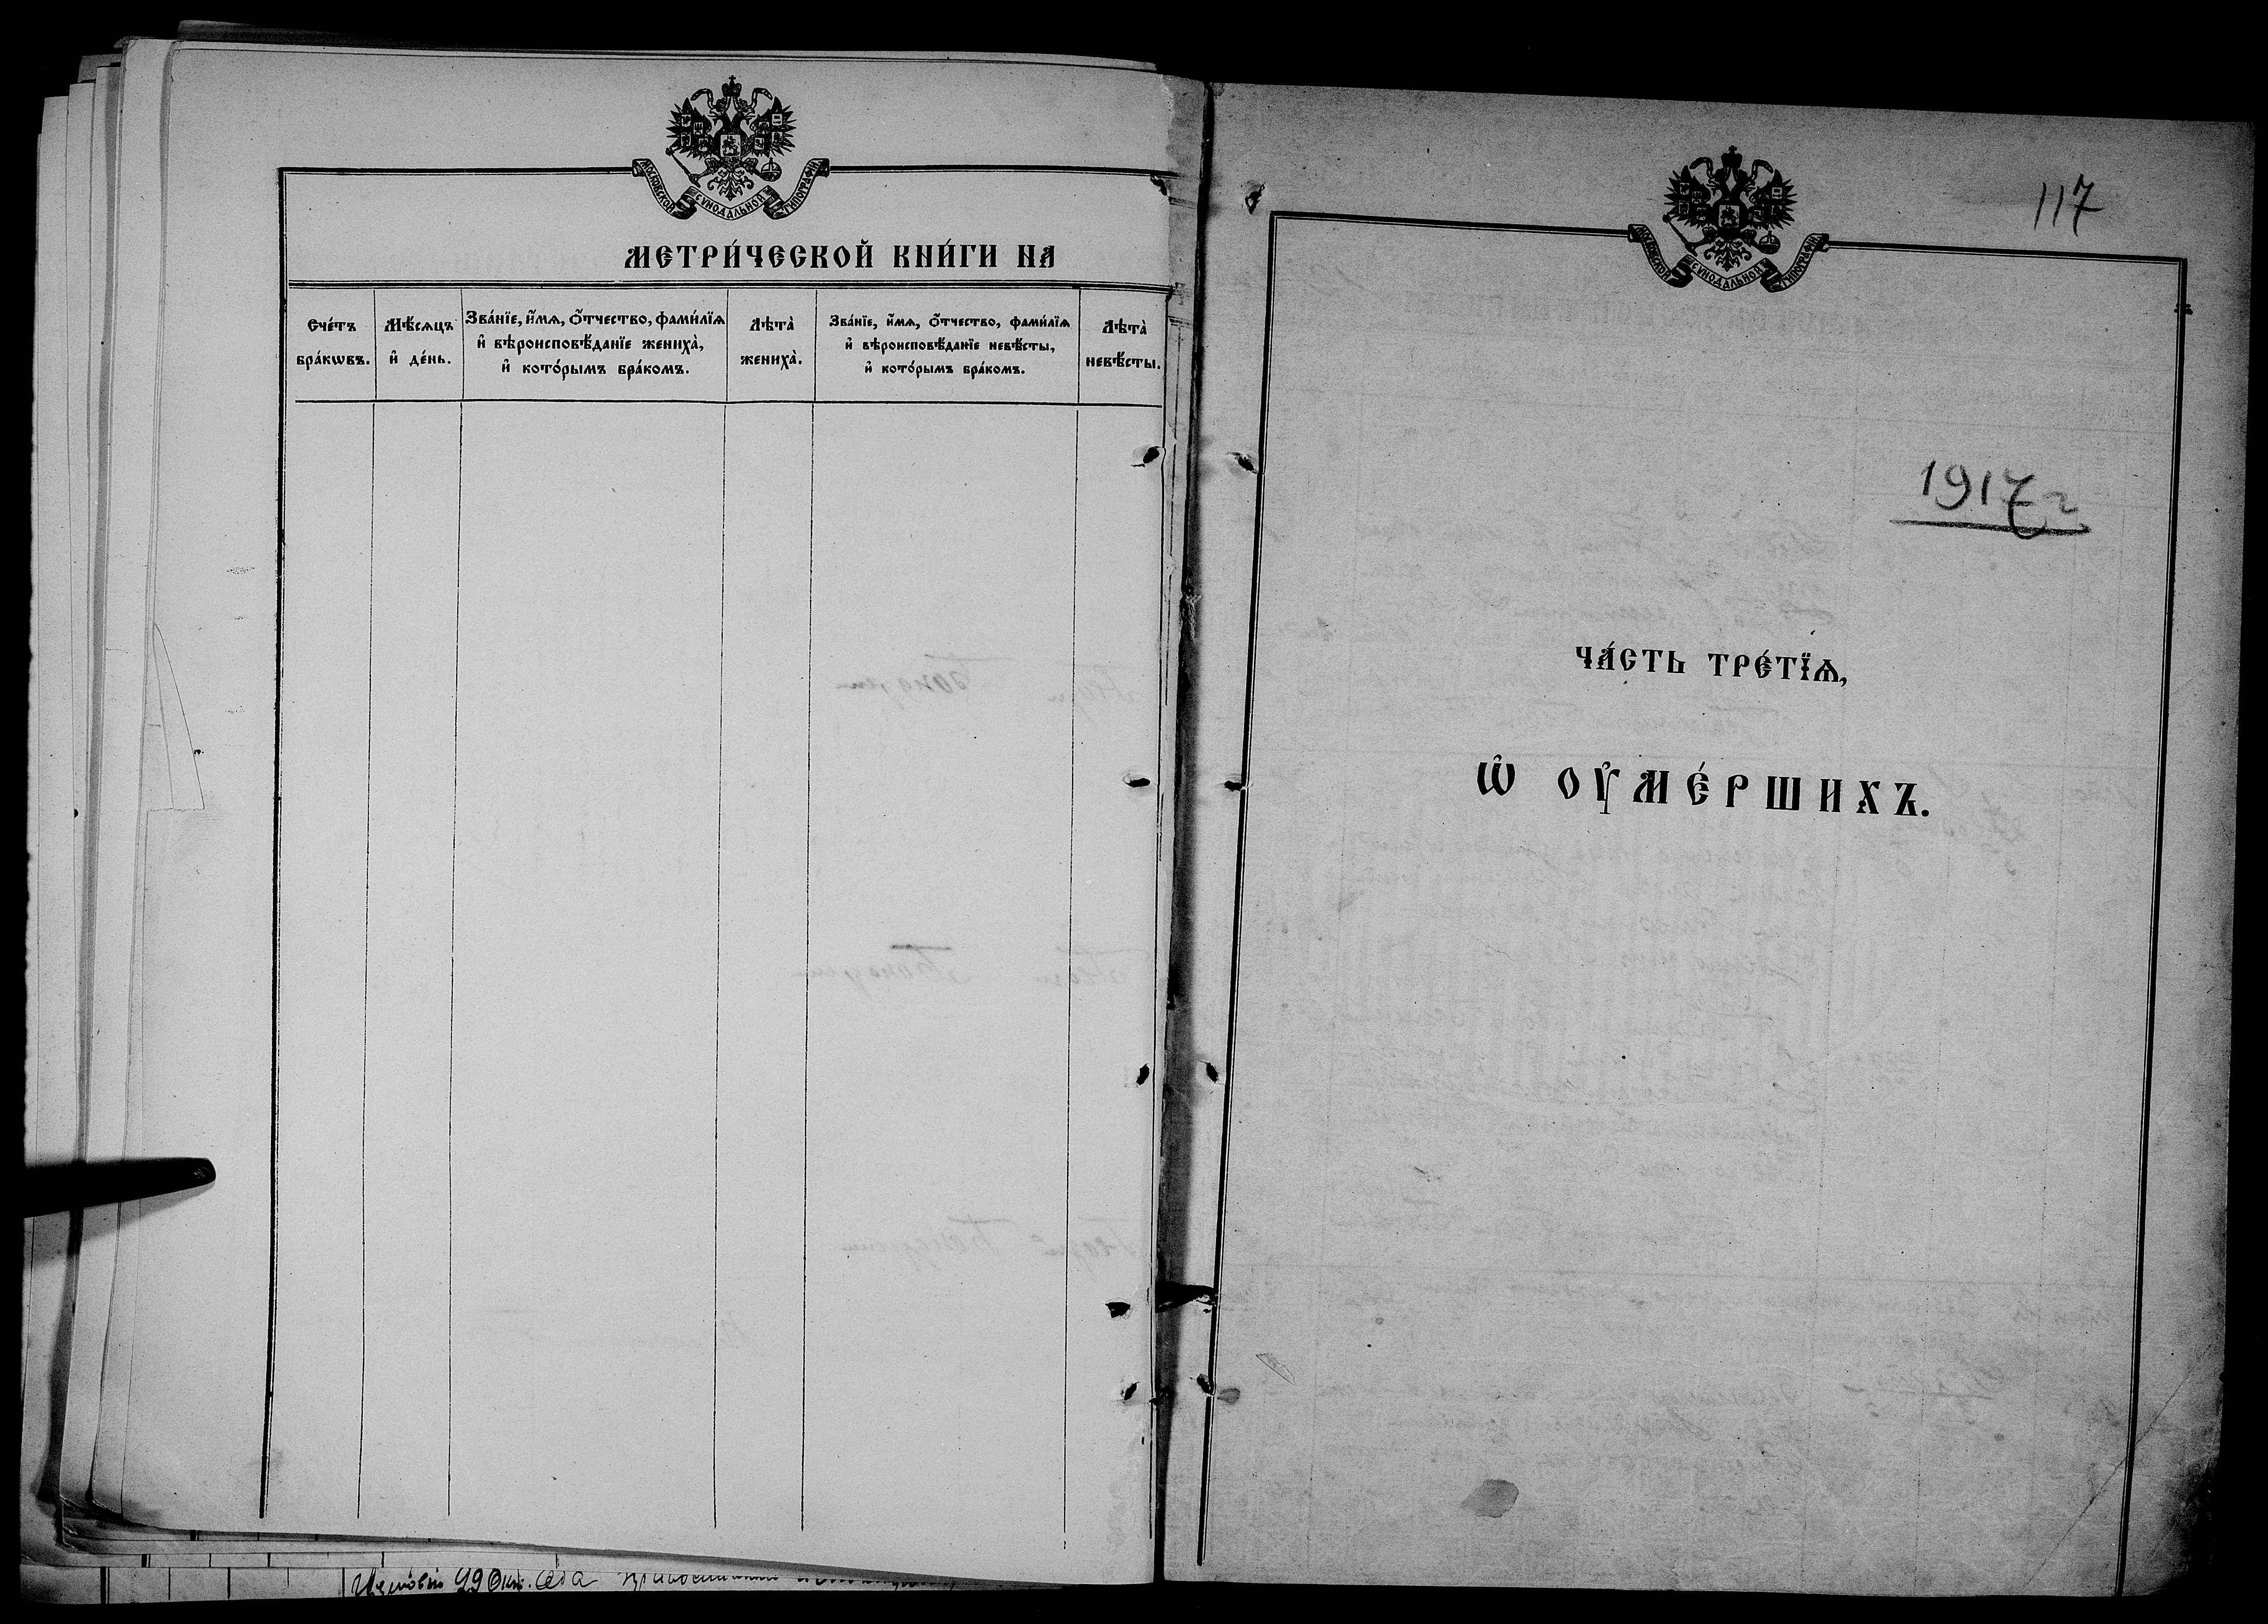 МОСКОВСКОЙ СѴНОДАЛЬНОЙ ТИПОГРАФІИ
МЕТРИ́ЧЕСКОЙ КНИ́ГИ НА
Сче́тъ бра́кѡвъ.
Мѣ́сѧцъ и҆ де́нь.
Зва́нїе, и҆́мѧ, ѻ҆́тчество, фамиˊлїѧ
и҆ вѣроисповѣ́данїе жениха̀,
и҆ кото́рымъ бра́комъ.
Лѣта̀ жениха̀.
Зва́нїе, и҆́мѧ, ѻ҆́тчество, фами́лїѧ
и҆ вѣроисповѣ́данїе невѣ́сты,
и҆ кото́рымъ бра́комъ.
Лѣта̀ невѣ́сты.
117
МОСКОВСКОЙ СѴНОДАЛЬНОЙ ТИПОГРАФІИ
1917 г
ЧА́СТЬ ТРЕ́ТЇѦ,
Ѡ҆ ОУ҆МЕ́РШИХЪ.